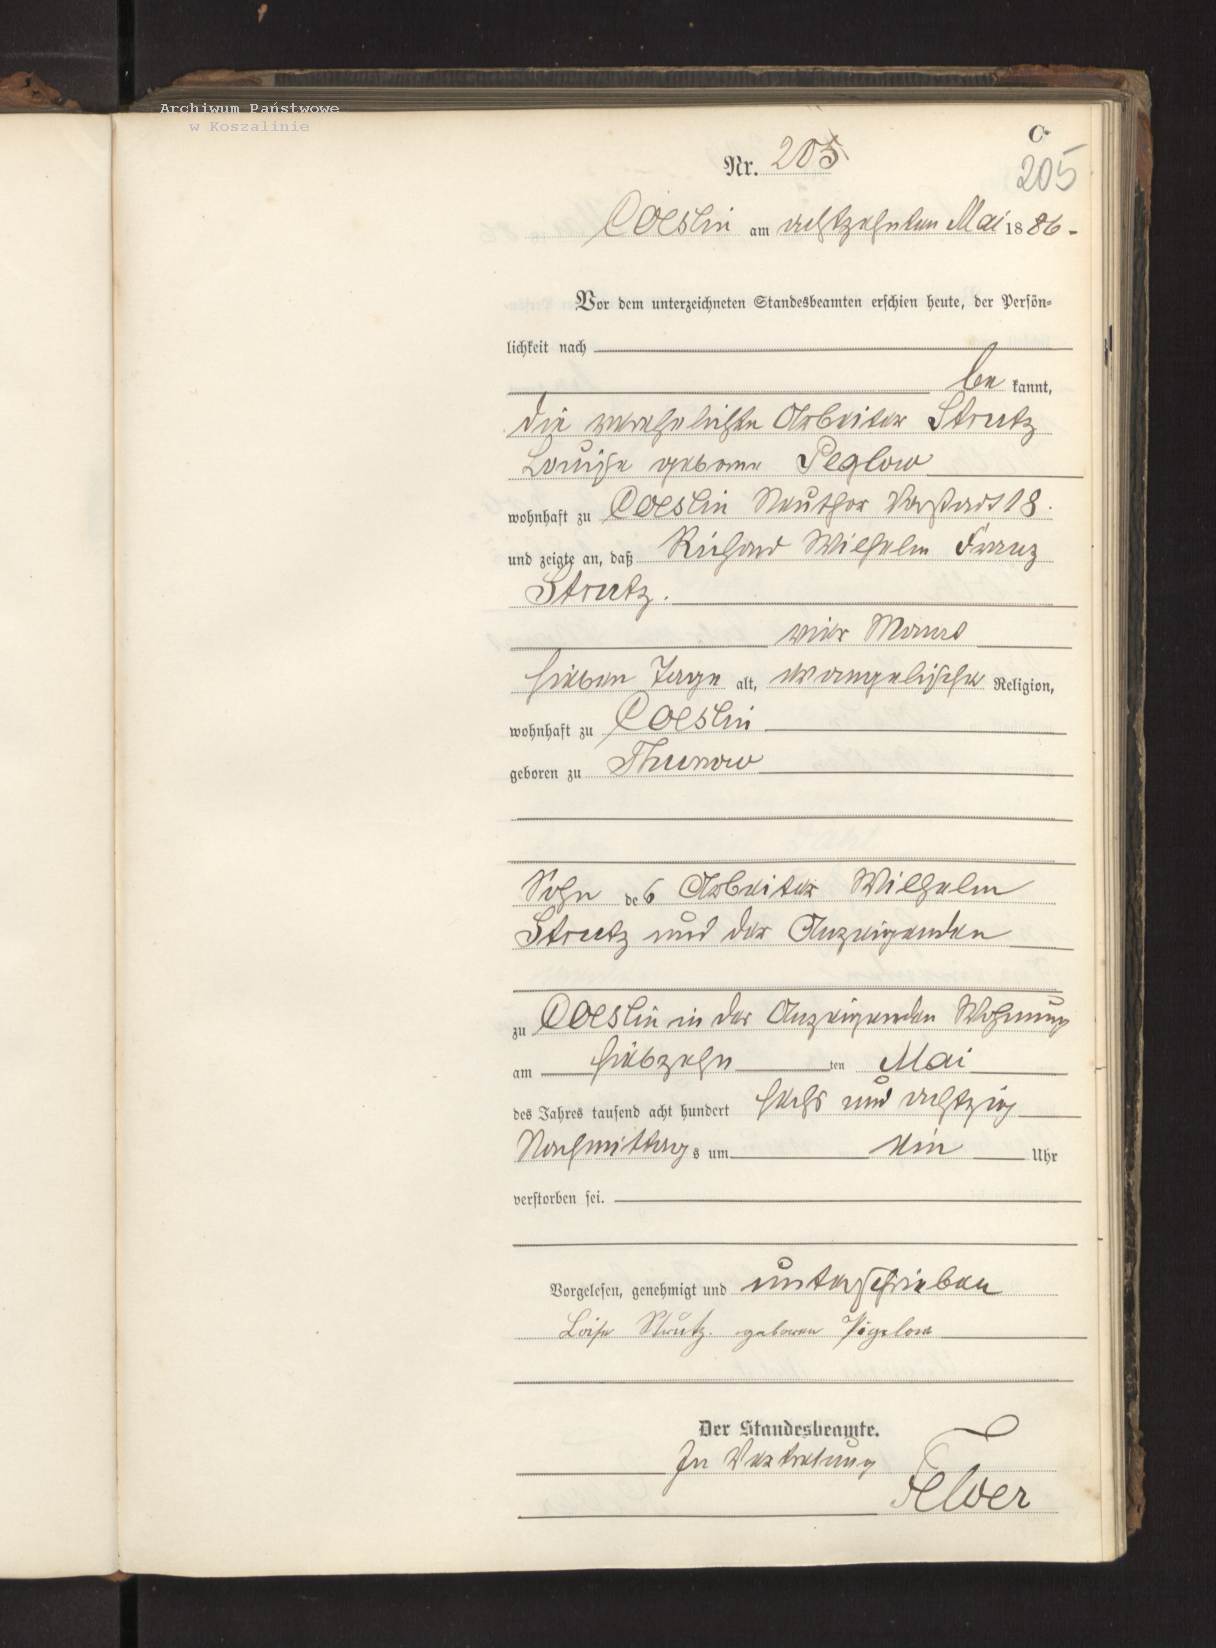 Archiwum Państwowe
w Koszalinie
C.
Nr. 205
205
Coeslin am achtzehnten Mai 1886.
Vor dem unterzeichneten Standesbeamten erschien heute, der Persön-
lichkeit nach
be kannt,
die verehelichte Arbeiter Strutz
Louise geborne Peglow
wohnhaft zu Coeslin Neuthor Vorstadt 18.
und zeigte an, daß Richard Wilhelm Franz
Strutz.
vier Monat
sieben Tage alt, evangelischer Religion,
wohnhaft zu Coeslin
geboren zu Thunow
Sohn des Arbeiter Wilhelm
Strutz und der Anzeigenden
zu Coeslin in der Anzeigenden Wohnung
am siebzehn ten Mai
des Jahres tausend acht hundert sechs und achtzig
Nachmittags um ein Uhr
verstorben sei.
Vorgelesen, genehmigt und unterschrieben
Loise Strutz. geboren Pegelow
Der Standesbeamte.
In Vertretung